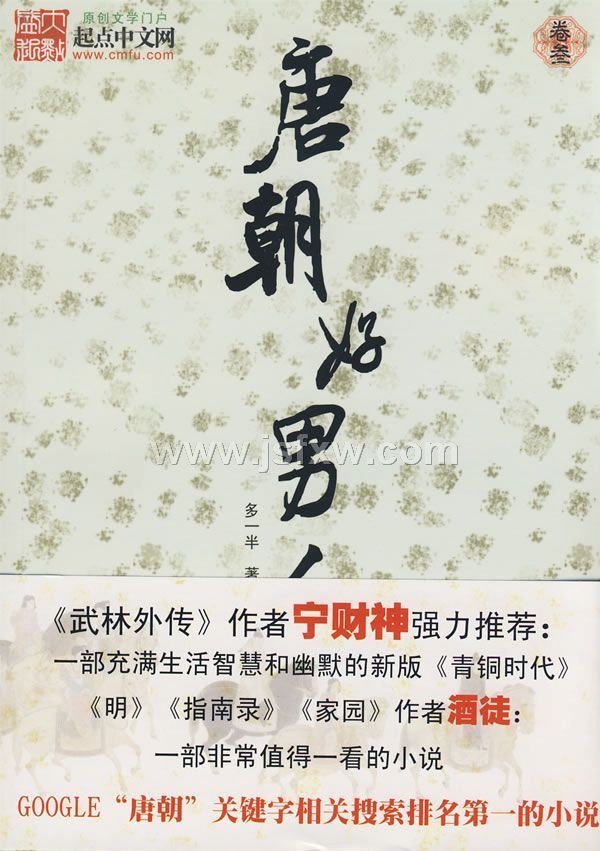 原创文学门户
起点中文网
www.cmfu.com
卷叁
唐朝好男人
多一半 著
www.jsfxw.com
《武林外传》作者宁财神强力推荐：
一部充满生活智慧和幽默的新版《青铜时代》
《明》《指南录》《家园》作者酒徒：
一部非常值得一看的小说
GOOGLE“唐朝”关键字相关搜索排名第一的小说